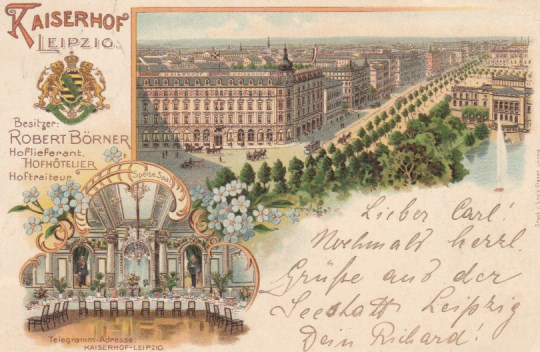 KAISERHOF
LEIPZIG.
Besitzer:
ROBERT BÖRNER
Hoflieferant.
HOFHÔTELIER
Hoftraiteur
Speise Saal
Telegramm-Adresse:
KAISERHOF-LEIPZIG.
Lieber Carl!
Nochmals herzl.
Grüße aus der
Seestadt Leipzig
Dein Richard!